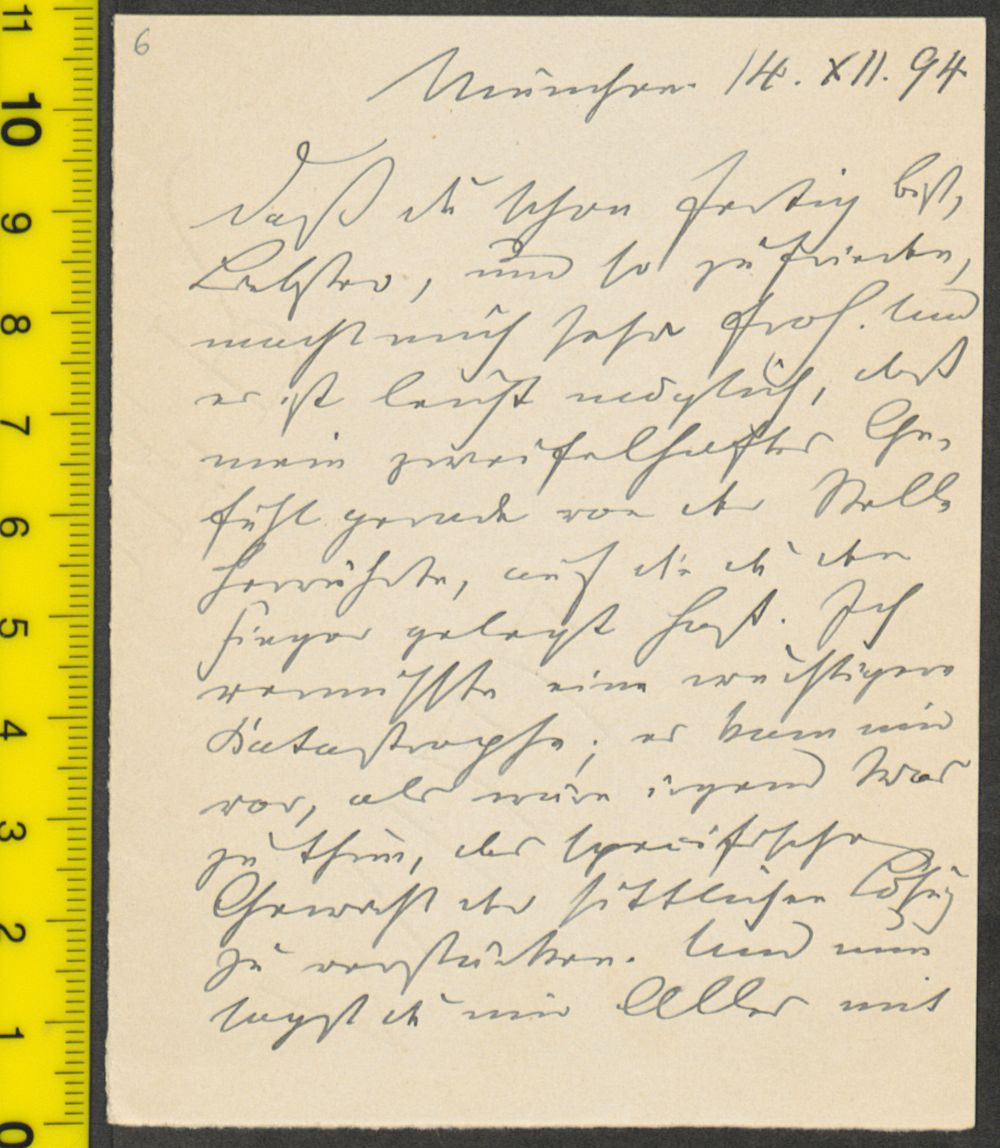 6
München 14. XII. 94
Daß du schon fertig bist,
Liebster, und so zufrieden,
macht mich sehr froh. Und
es ist leicht möglich, daß
mein zweifelhaftes Ge-
fühl gerade von der Stelle
herrührte, auf die du den
Finger gelegt hast. Ich
vermißte eine wuchtigere
Katastrophe; es kam mir
vor, als wäre irgend was
zu thun, das spezifische
Gewicht der sittlichen Lösug
zu verstärken. Und nun
sagst du mir Alles mit
11
10
9
8
7
6
5
4
3
2
1
0